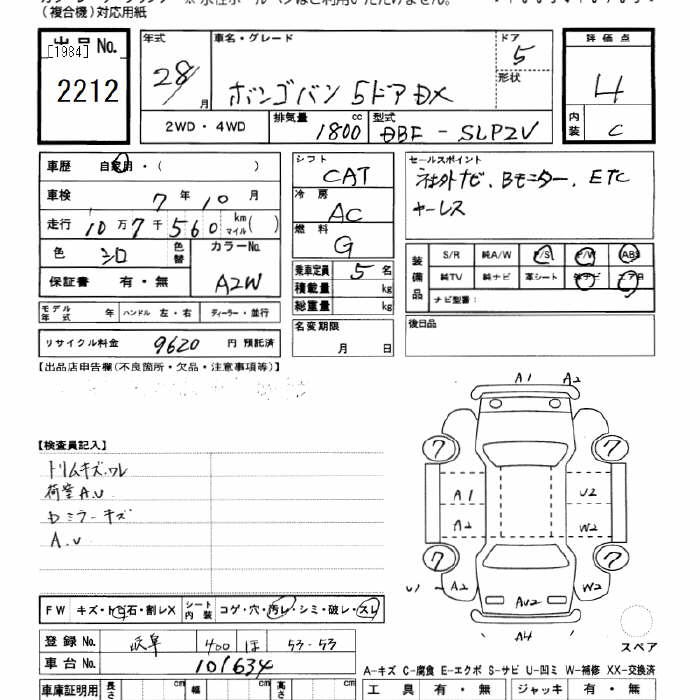 (複合機)対応用紙
出品No.
[1984]
2212
年式
28/
月
車名・グレード
ボンゴバン 5ドアDX
ドア
5
形状
2WD・4WD
排気量
1800 cc
型式
DBF-SLP2V
評価点
4
内装
C
車歴 自家用・( )
車検 7年10月
走行 10万7千560 km マイル( )
色 シロ
色替
カラーNo.
A2W
保証書 有・無
モデル年式 年 ハンドル 左・右 ディーラー・並行
リサイクル料金 9620 円 預託済
シフト
CAT
冷房
AC
燃料
G
乗車定員 5名
積載量 kg
総重量 kg
名変期限
月 日
セールスポイント
社外ナビ、Bモニター、ETC
キーレス
装備品
S/R 純A/W P/S P/W ABS
純TV 純ナビ 革シート 外ナビ エアB
ナビ型番:
後日品
【出品店申告欄(不良箇所・欠品・注意事項等)】
【検査員記入】
トリムキズ.ワレ
荷室A.U
Dミラーキズ
A.U
A1 A2
7 7
A1 U2
A2 W2
7 7
U1 A2 W2
AU2
A4
スペア
FW キズ・トビ石・割レX
シート内装 コゲ・穴・汚レ・シミ・破レ・スレ
登録No. 岐阜 400 ほ 53-53
車台No. 101634
車庫証明用 長さ cm 幅 cm 高さ cm
A-キズ C-腐食 E-エクボ S-サビ U-凹ミ W-補修 XX-交換済
工具 有・無 ジャッキ 有・無